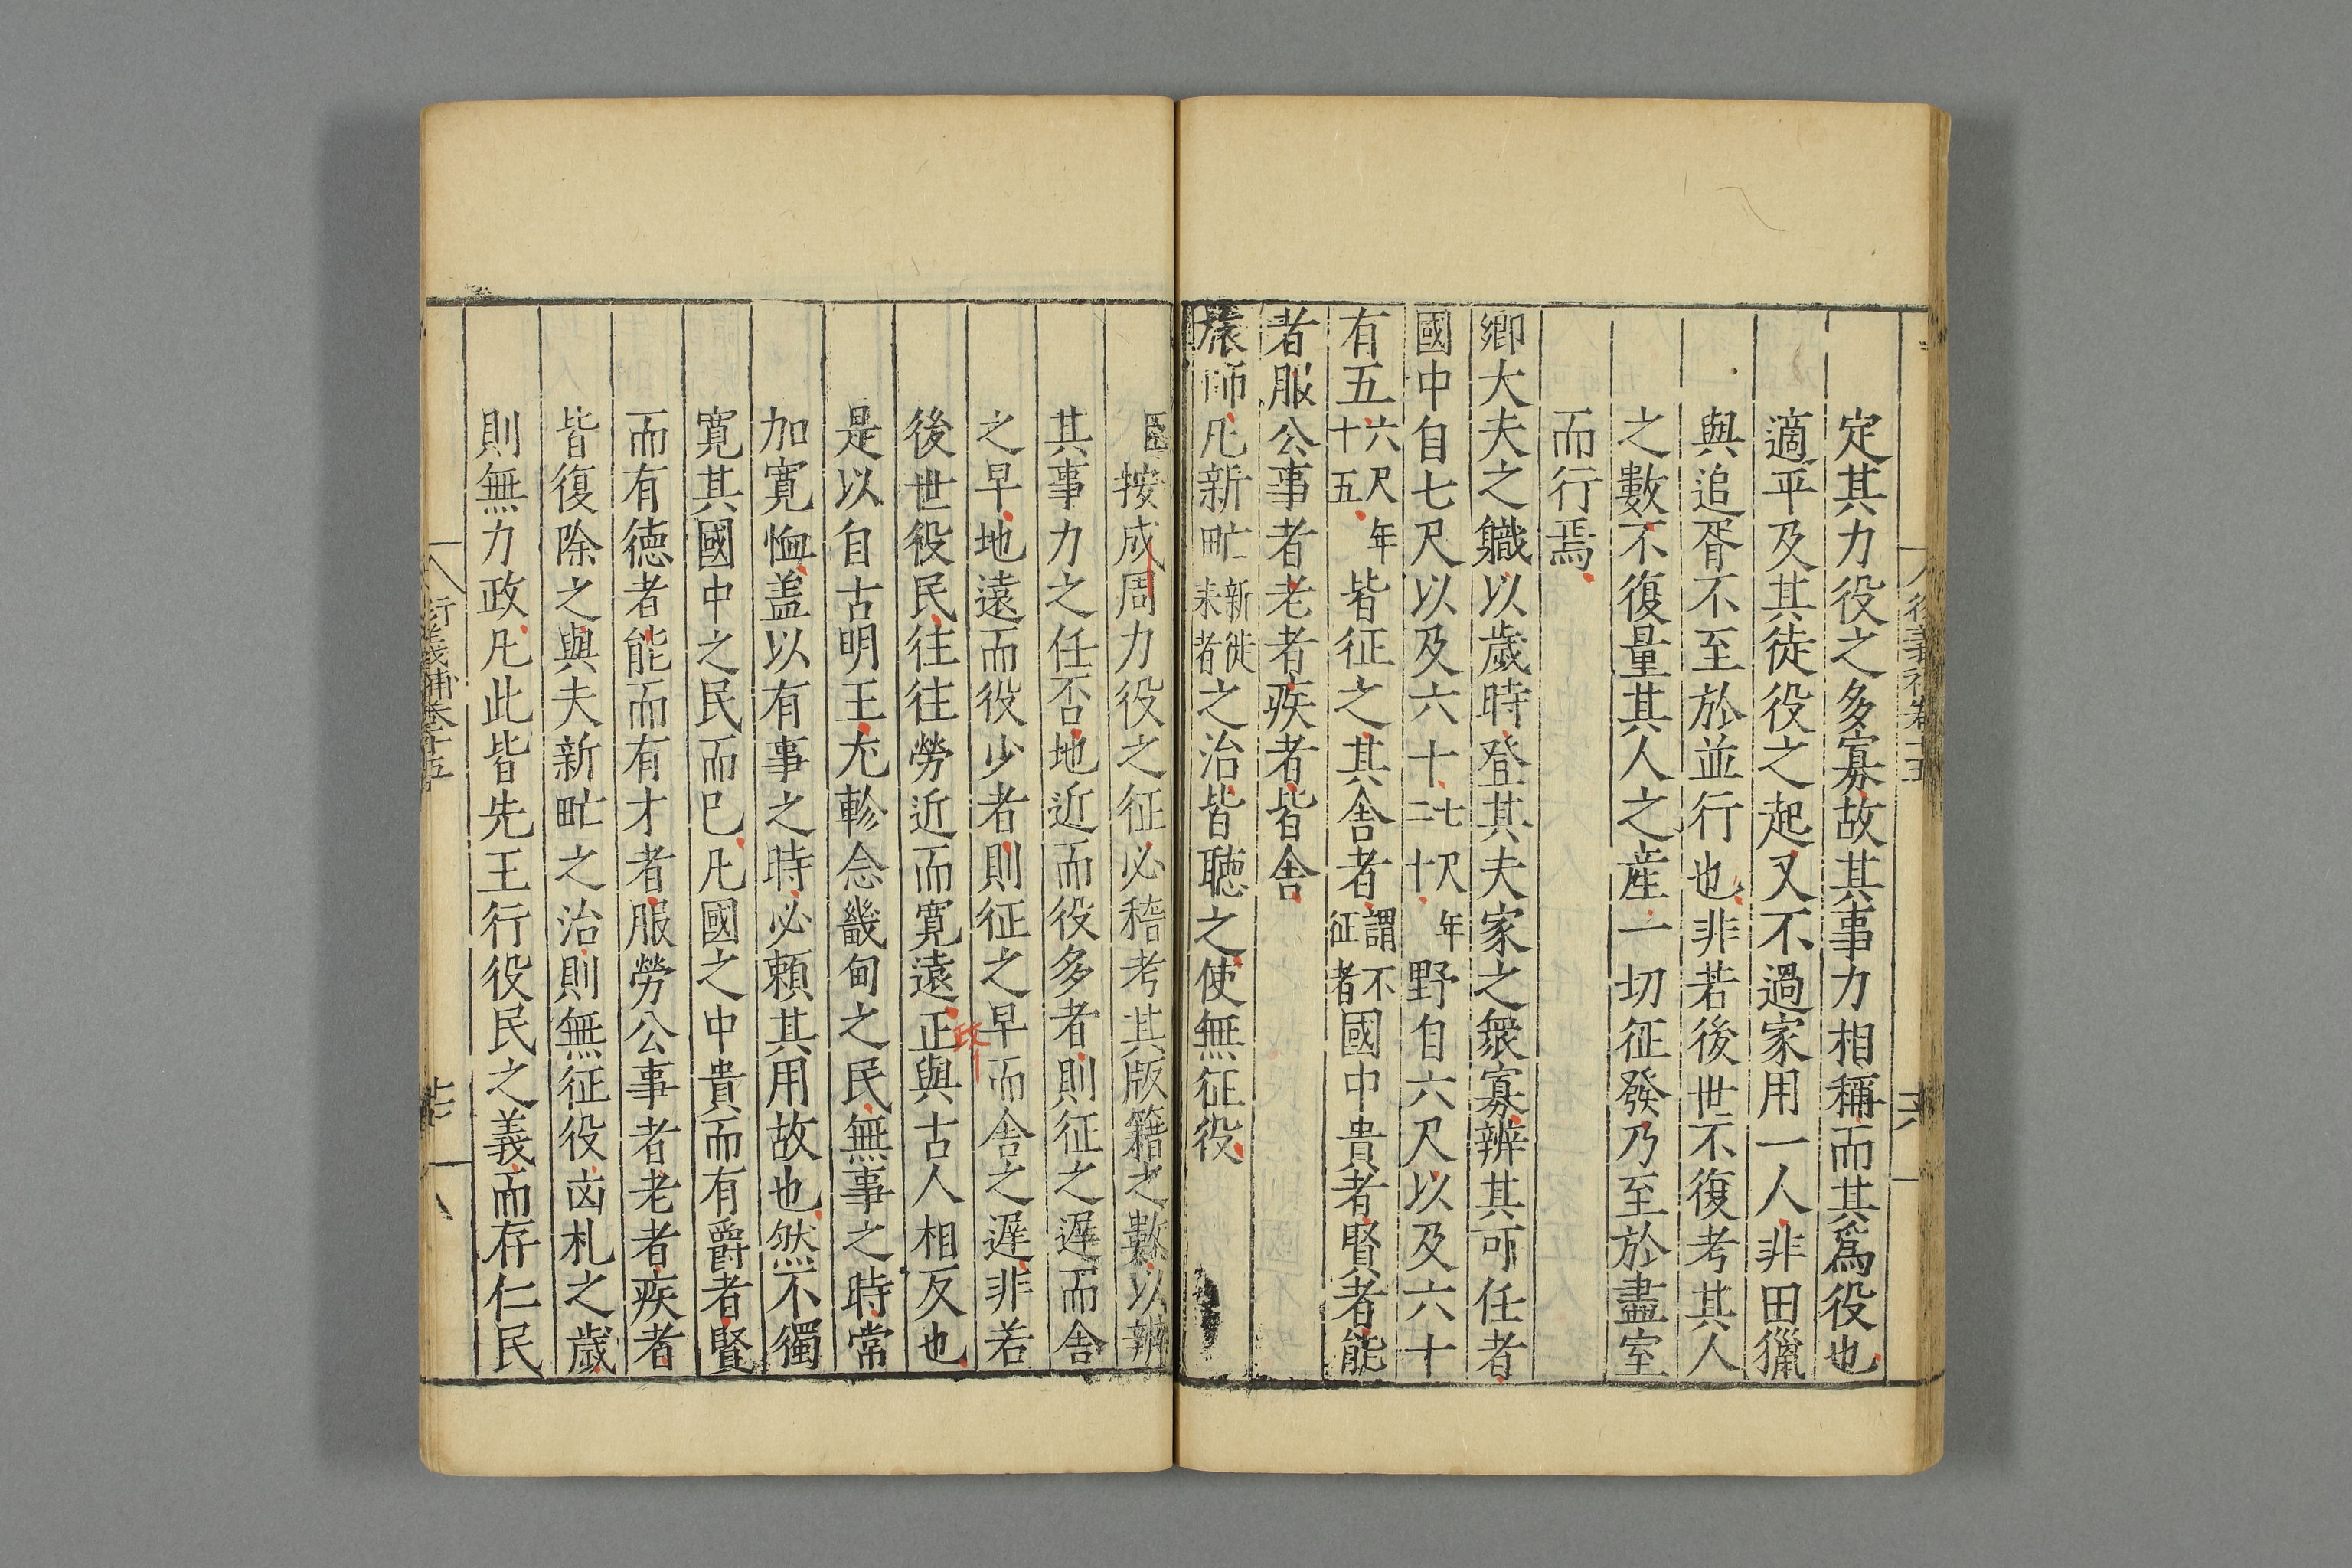 定其力役之多寡故其事力相稱而其爲役也
適平及其徒役之起又不過家用一人非田獵
與追胥不至於並行也非若後世不復考其人
之數不復量其人之産一切征發乃至於盡室
而行焉
鄉大夫之職以歲時登其夫家之衆寡辨其可任者
國中自七尺以及六十七尺年二十野自六尺以及六十
有五六尺年十五皆征之其舍者謂不征者國中貴者賢者能
者服公事者老者疾者皆舍
旅師凡新甿新徙来者之治皆聽之使無征役
臣按成周力役之征必稽考其版籍之數以辨
其事力之任否地近而役多者則征之遲而舍
之早地遠而役少者則征之早而舍之遲非若
後世役民往往勞近而寛遠正與古人相反也
政
是以自古明王尤軫念畿甸之民無事之時常
加寛恤盖以有事之時必頼其用故也然不獨
寛其國中之民而已凡國之中貴而有爵者賢
而有徳者能而有才者服勞公事者老者疾者
皆復除之與夫新甿之治則無征役凶札之歲
則無力政凡此皆先王行役民之義而存仁民
衍義補卷十五
十七